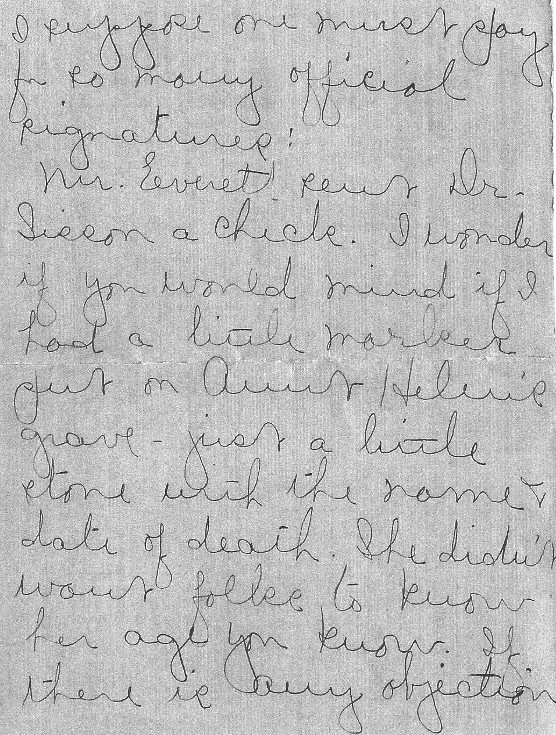 I suppose one must pay
for so many official
signatures!
Mr. Everett sent Dr.
Sisson a check. I wonder
if you would mind if I
had a little marker
put on Aunt Helen's
grave - just a little
stone with the name &
date of death. She didn't
want folks to know
her age you know. If
there is any objection